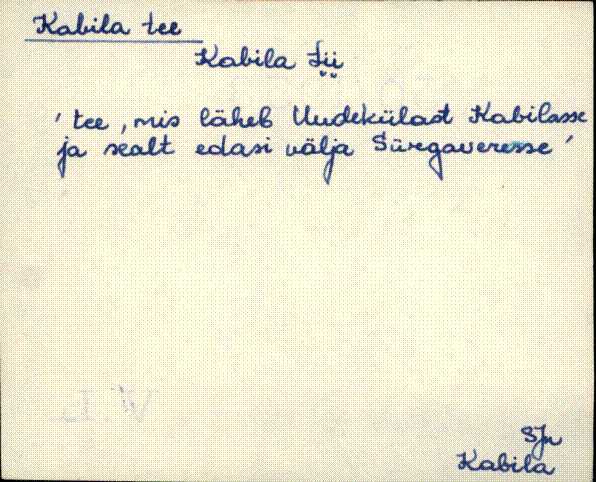 Kabila tee
Kabila tii
' tee, mis läheb Uudekülast Kabilasse
ja sealt edasi välja Sürgaveresse '
SJn
Kabila